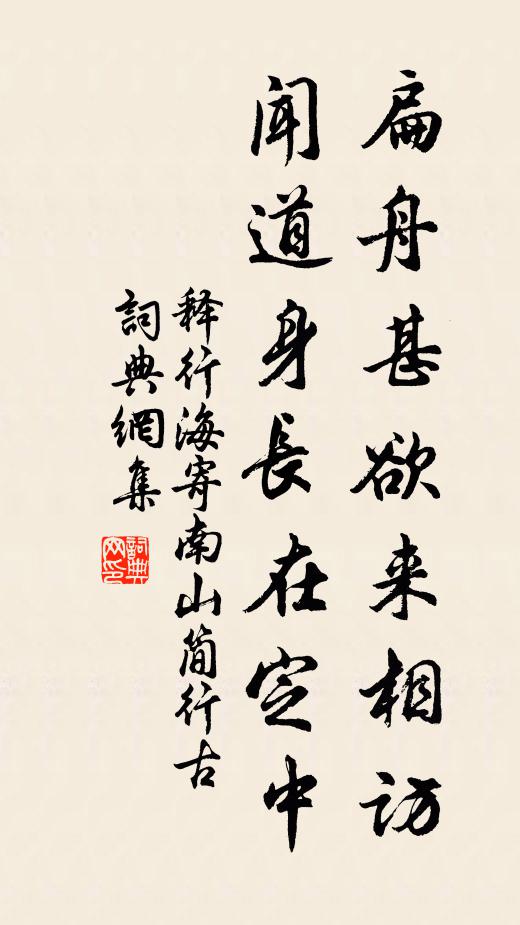 扁舟甚欲来相访
闻道身長在定中
释行海寄南山简行古
詞典網集
詞典
网印